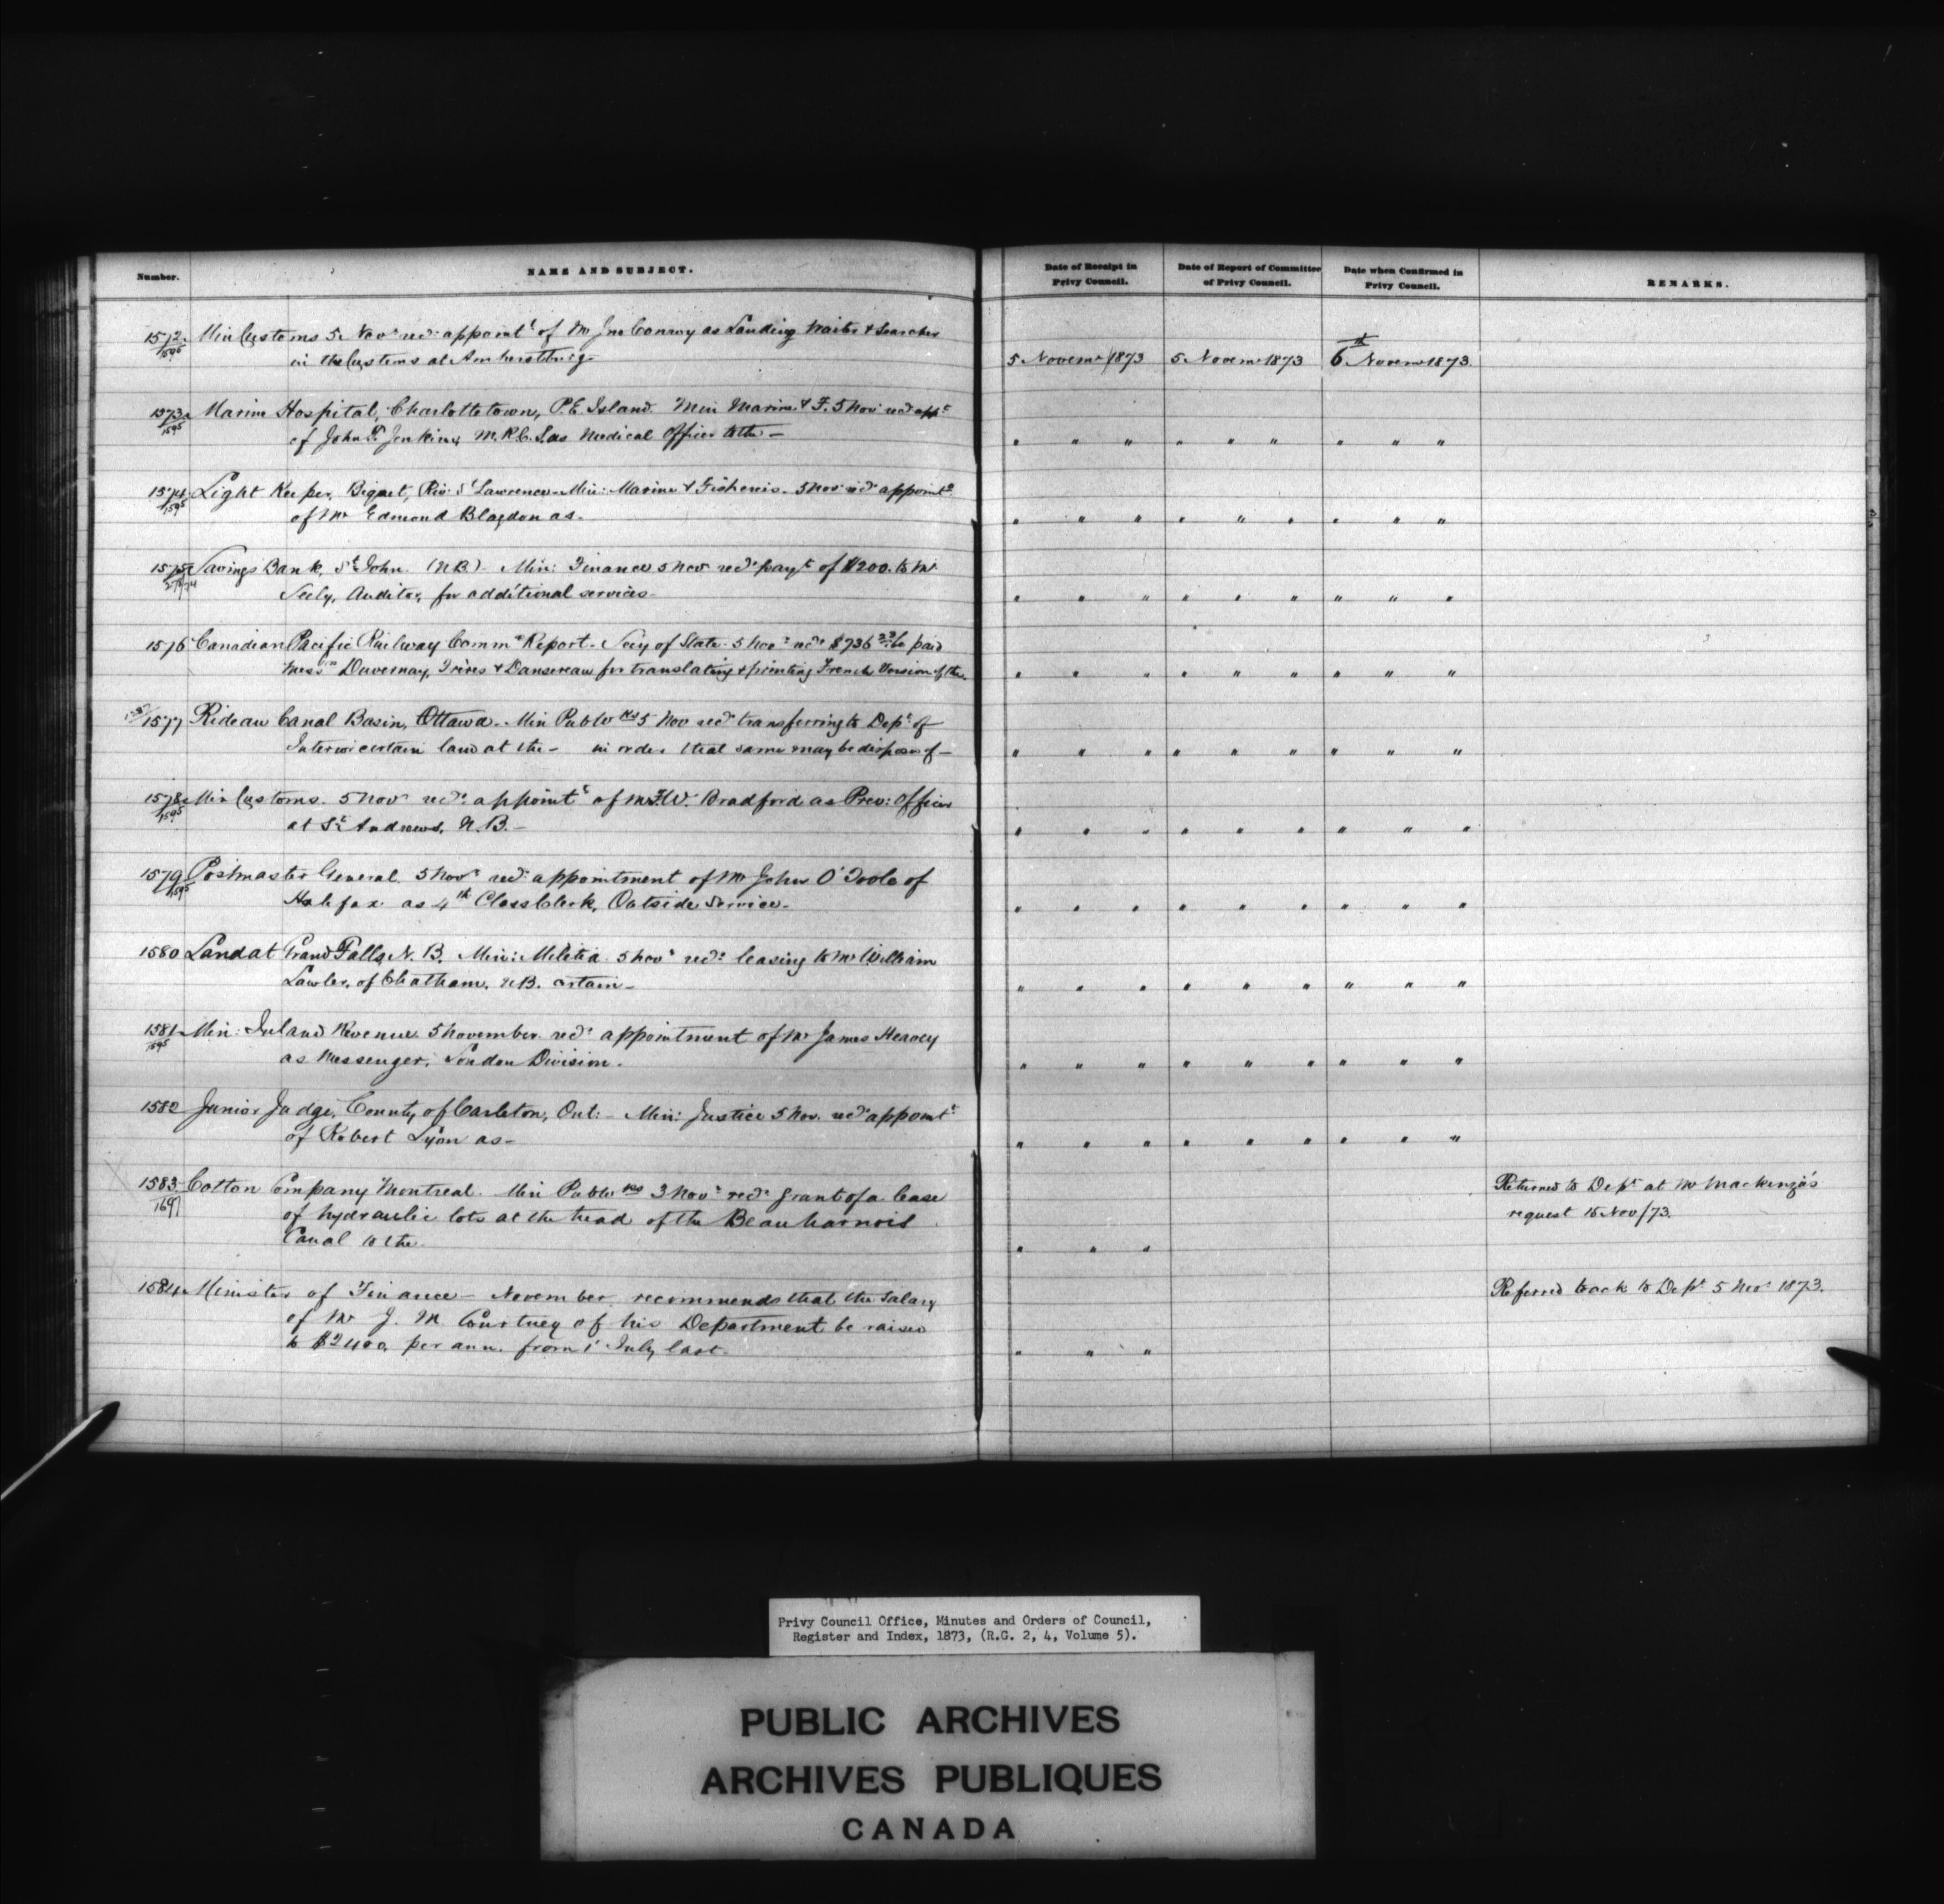 Number. NAME AND SUBJECT. Date of Receipt in Privy Council. Date of Report of Committee of Privy Council. Date when Confirmed in Privy Council. REMARKS.
1572 Min Customs 5 Novr recd appointt of Mr Jno Conroy as Landing Waiter & Searcher
1595 in the Customs at Amherstburg- 5 Novemr 1873 5 Novemr 1873 6th Novemr 1873.
1573 Marine Hospital, Charlottetown, P.E. Island. Min Marine & F. 5 Nov recd appt
1595 of John T. Jenkins, M.R.C.S as Medical Officer to the — " " " " " " " " "
1574 Light Keeper, Biquet, Riv: St Lawrence - Min: Marine & Fisheries - 5 Nov recd appointt
1595 of Mr Edmond Blagdon as. " " " " " " " " "
1575 Savings Bank, St John (N.B.) Min: Finance 5 Nov recd payt of $200. to Mr
Seely, Auditor, for additional services- " " " " " " " " "
1576 Canadian Pacific Railway Commn Report - Secy of State 5 Nov: recd $736 33 to be paid
Messrs Duvernay, Frères & Dansereau for translating & printing French Version of the " " " " " " " " "
1577 Rideau Canal Basin, Ottawa - Min Pub Wks 5 Nov recd transferring to Dept of
Interior certain land at the - in order that same may be disposed of - " " " " " " " " "
1578 Min Customs. 5 Novr recd: appointt of Mr F.W. Bradford as Prev: Officer
1595 at St Andrews, N.B. - " " " " " " " " "
1579 Postmaster General. 5 Novr recd: appointment of Mr John O'Toole of
1595 Halifax as 4th Class Clerk, Outside Service- " " " " " " " " "
1580 Land at Grand Falls, N.B. Min: Militia 5 Novr recd: leasing to Mr William
Lawler, of Chatham, N.B. certain - " " " " " " " " "
1581 Min: Inland Revenue 5 November recd: appointment of Mr James
1595 as Messenger, London Division. " " " " " " " " "
1582 Junior Judge, County of Carleton, Ont: - Min: Justice 5 Nov. recd appointt
of Robert Lyon as - " " " " " " " " "
1583 Cotton Company Montreal. Min Pub Wks 3 Novr recd: grant of a lease Returned to Dept at Mr Mackenzie's
1691 of hydraulic lots at the head of the Beauharnois request 15 Nov/73.
Canal to the " " "
1584 Minister of Finance - November recommends that the Salary Referred back to Dept 5 Nov 1873.
of Mr J. M. Courtney of his Department be raised
to $2400 per ann. from 1 July last. " " "
Privy Council Office, Minutes and Orders of Council,
Register and Index, 1873, (R.G. 2, 4, Volume 5).
PUBLIC ARCHIVES
ARCHIVES PUBLIQUES
CANADA